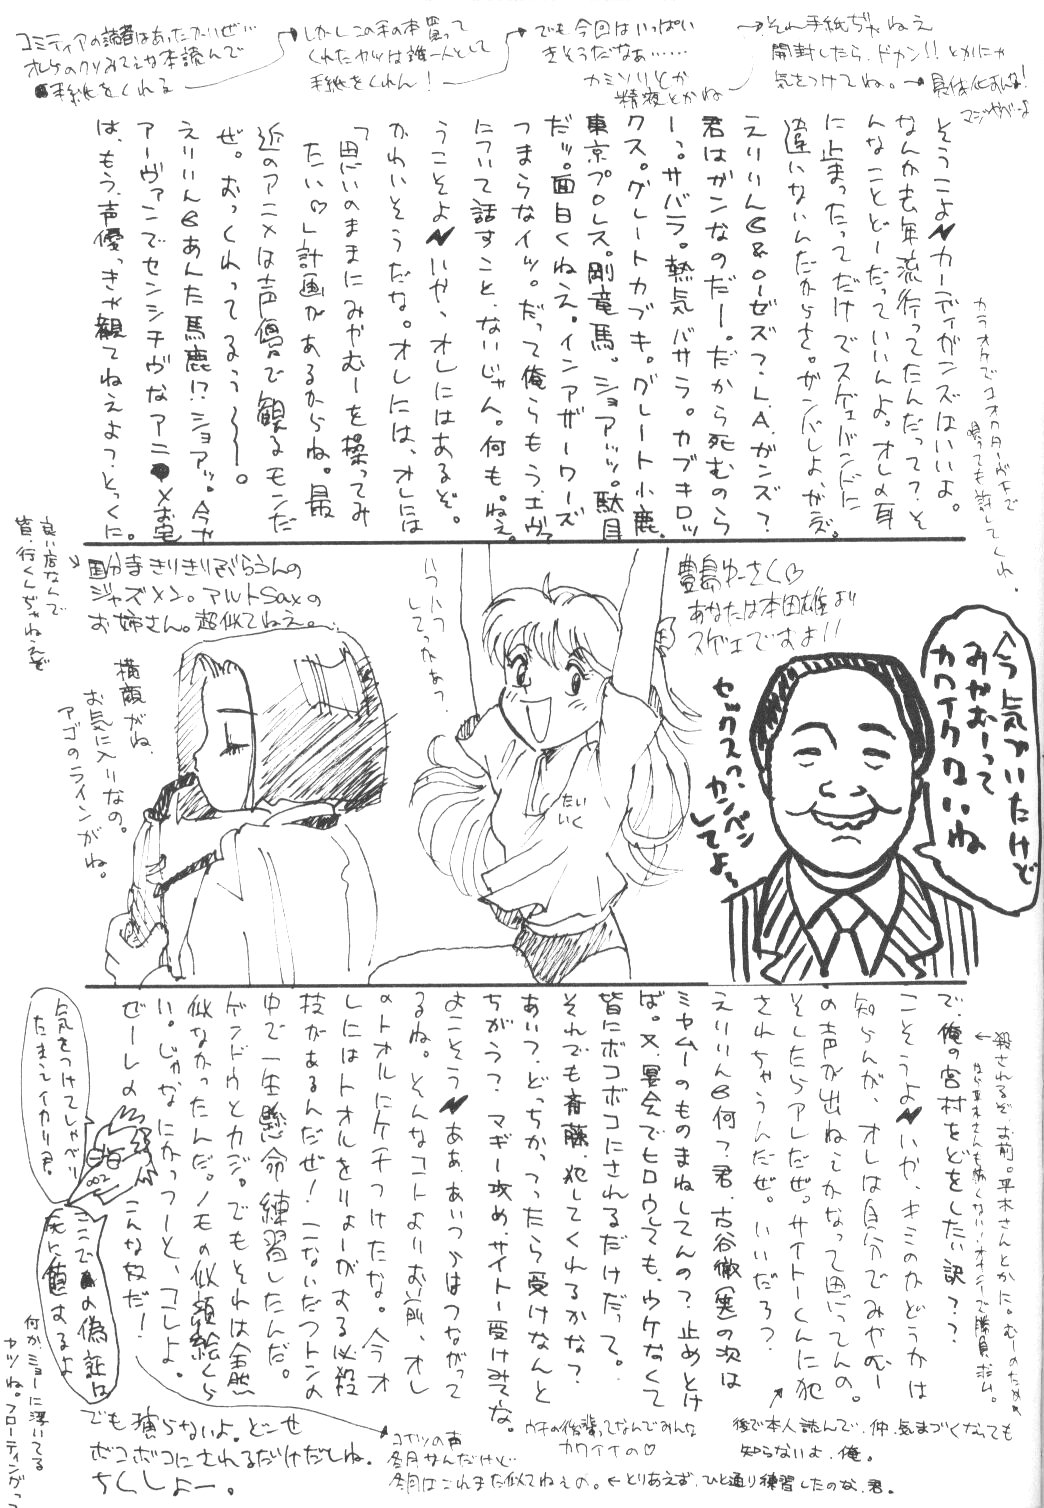 コミティアの読者はあったかいぜ…
オレらのクソみてえな本読んで
手紙をくれる
しかしこの手の本買って
くれたヤツは誰一人として
手紙をくれん!
でも今回はいっぱい
きそうだなあ……
カミソリとか
精液とかね
それ手紙ぢゃねえ
開封したら、ドカン!!とかにゃ
気をつけてね。
具体化すんな!
マジやべーよ
そうこよ カーディガンズはいいよ。
なんか去年流行ってたんだって?そ
んなことどーだっていいんよ。オレの耳
に止まったってだけでスゲェバンドに
違いないんだからさ。ガンバしよ、が、ぜ。
えりりん&ローゼズ?L.A.ガンズ?
君はガンなのだー。だから死むのら
ーっ。サバラ。熱気バサラ。カブキロッ
クス。グレートカブキ。グレート小鹿。
東京プロレス。剛竜馬。ショアッッ。駄目
だッ。面白くねえ。インアザーワーズ
つまらなイッ。だって俺らもう、エヴァ
について話すこと、ないじゃん。何も。ねえ。
うこそよ いや、オレにはあるぞ。
かわいそうだな。オレには、オレには
「思いのままにみやむーを操ってみ
たい♡」計画があるからね。最
近のアニメは声優で観るモンだ
ぜ。おっくれってるぅ〜〜。
えりりん あんた馬鹿!?ショアッ。今や
アーヴァンでセンシチヴなアニメお宅
は、もう、声優っきゃ観てねえよっ。とっくに。
カラオケで
唄っても許してくれ。
良い店なんで
皆、行くんぢゃねえぞ
国分寺きりきりぶらうんの
ジャズメン。アルトSaxの
お姉さん。超似てねえ。
横顔がね、
お気に入りなの。
アゴのラインがね。
いつハつ
してっかあっ
たいいく
豊島ゆーさく♡
あなたは本田雄より
スゲェですよ!!
セックスっ、カンペン
してよ〜
今気づいたけど
みやむーって
カワイクないね
で、俺の宮村をどをしたい訳??
こそうよ いや、キミのかどうかは
知らんが、オレは自分でみやむー
の声が出ねえかなって思ってんの。
そしたらアレだぜ。サイトーくんに犯
されちゃうんだぜ。いいだろ?
えりりん 何?君、古谷徹(裏)の次は
ミヤムーのものまねしてんの?止めとけ
ば。又、宴会でヒロウしても、ウケなくて
皆にボコボコにされるだけだって。
それでも斎藤、犯してくれるかな?
あいつ、どっちかっつったら受けなんと
ちがう?マギー攻め、サイトー受けみてな。
よこそう ああ、あいつらはつながって
るね。そんなコトよりお前、オレ
のトオルにケチつけたな。今うオ
レにはトオルをりょーがする必殺
技があるんだぜ!二ないだっトンの
中で一生懸命練習したんだ。
ゲンドウとカジ。でもそれは全然
似なかったんだ。ノモの似顔絵くら
い。じゃなにかっつーと、コレしよ。
ぜーレの こんな奴だ!
殺されるぞ、お前。平木さんとかに。むーのためめ
で勝負、求ム。
気をつけてしゃべり
たまえ、イカリ君。
ここでの偽証は
死に値するよ
何かミョーに浮いてる
ヤツね。フローティングっ
でも演らないよ。どーせ
ボコボコにされるだけだしね。
ちくしょー。
コイツの声
冬月はこれまた似てねぇの。
ウチの後輩ってなんでみんな
カワイイの♡
←とりあえず、ひと通り練習したのな、君。
後で本人読んで、仲、気まづくなっても
知らないよ、俺。